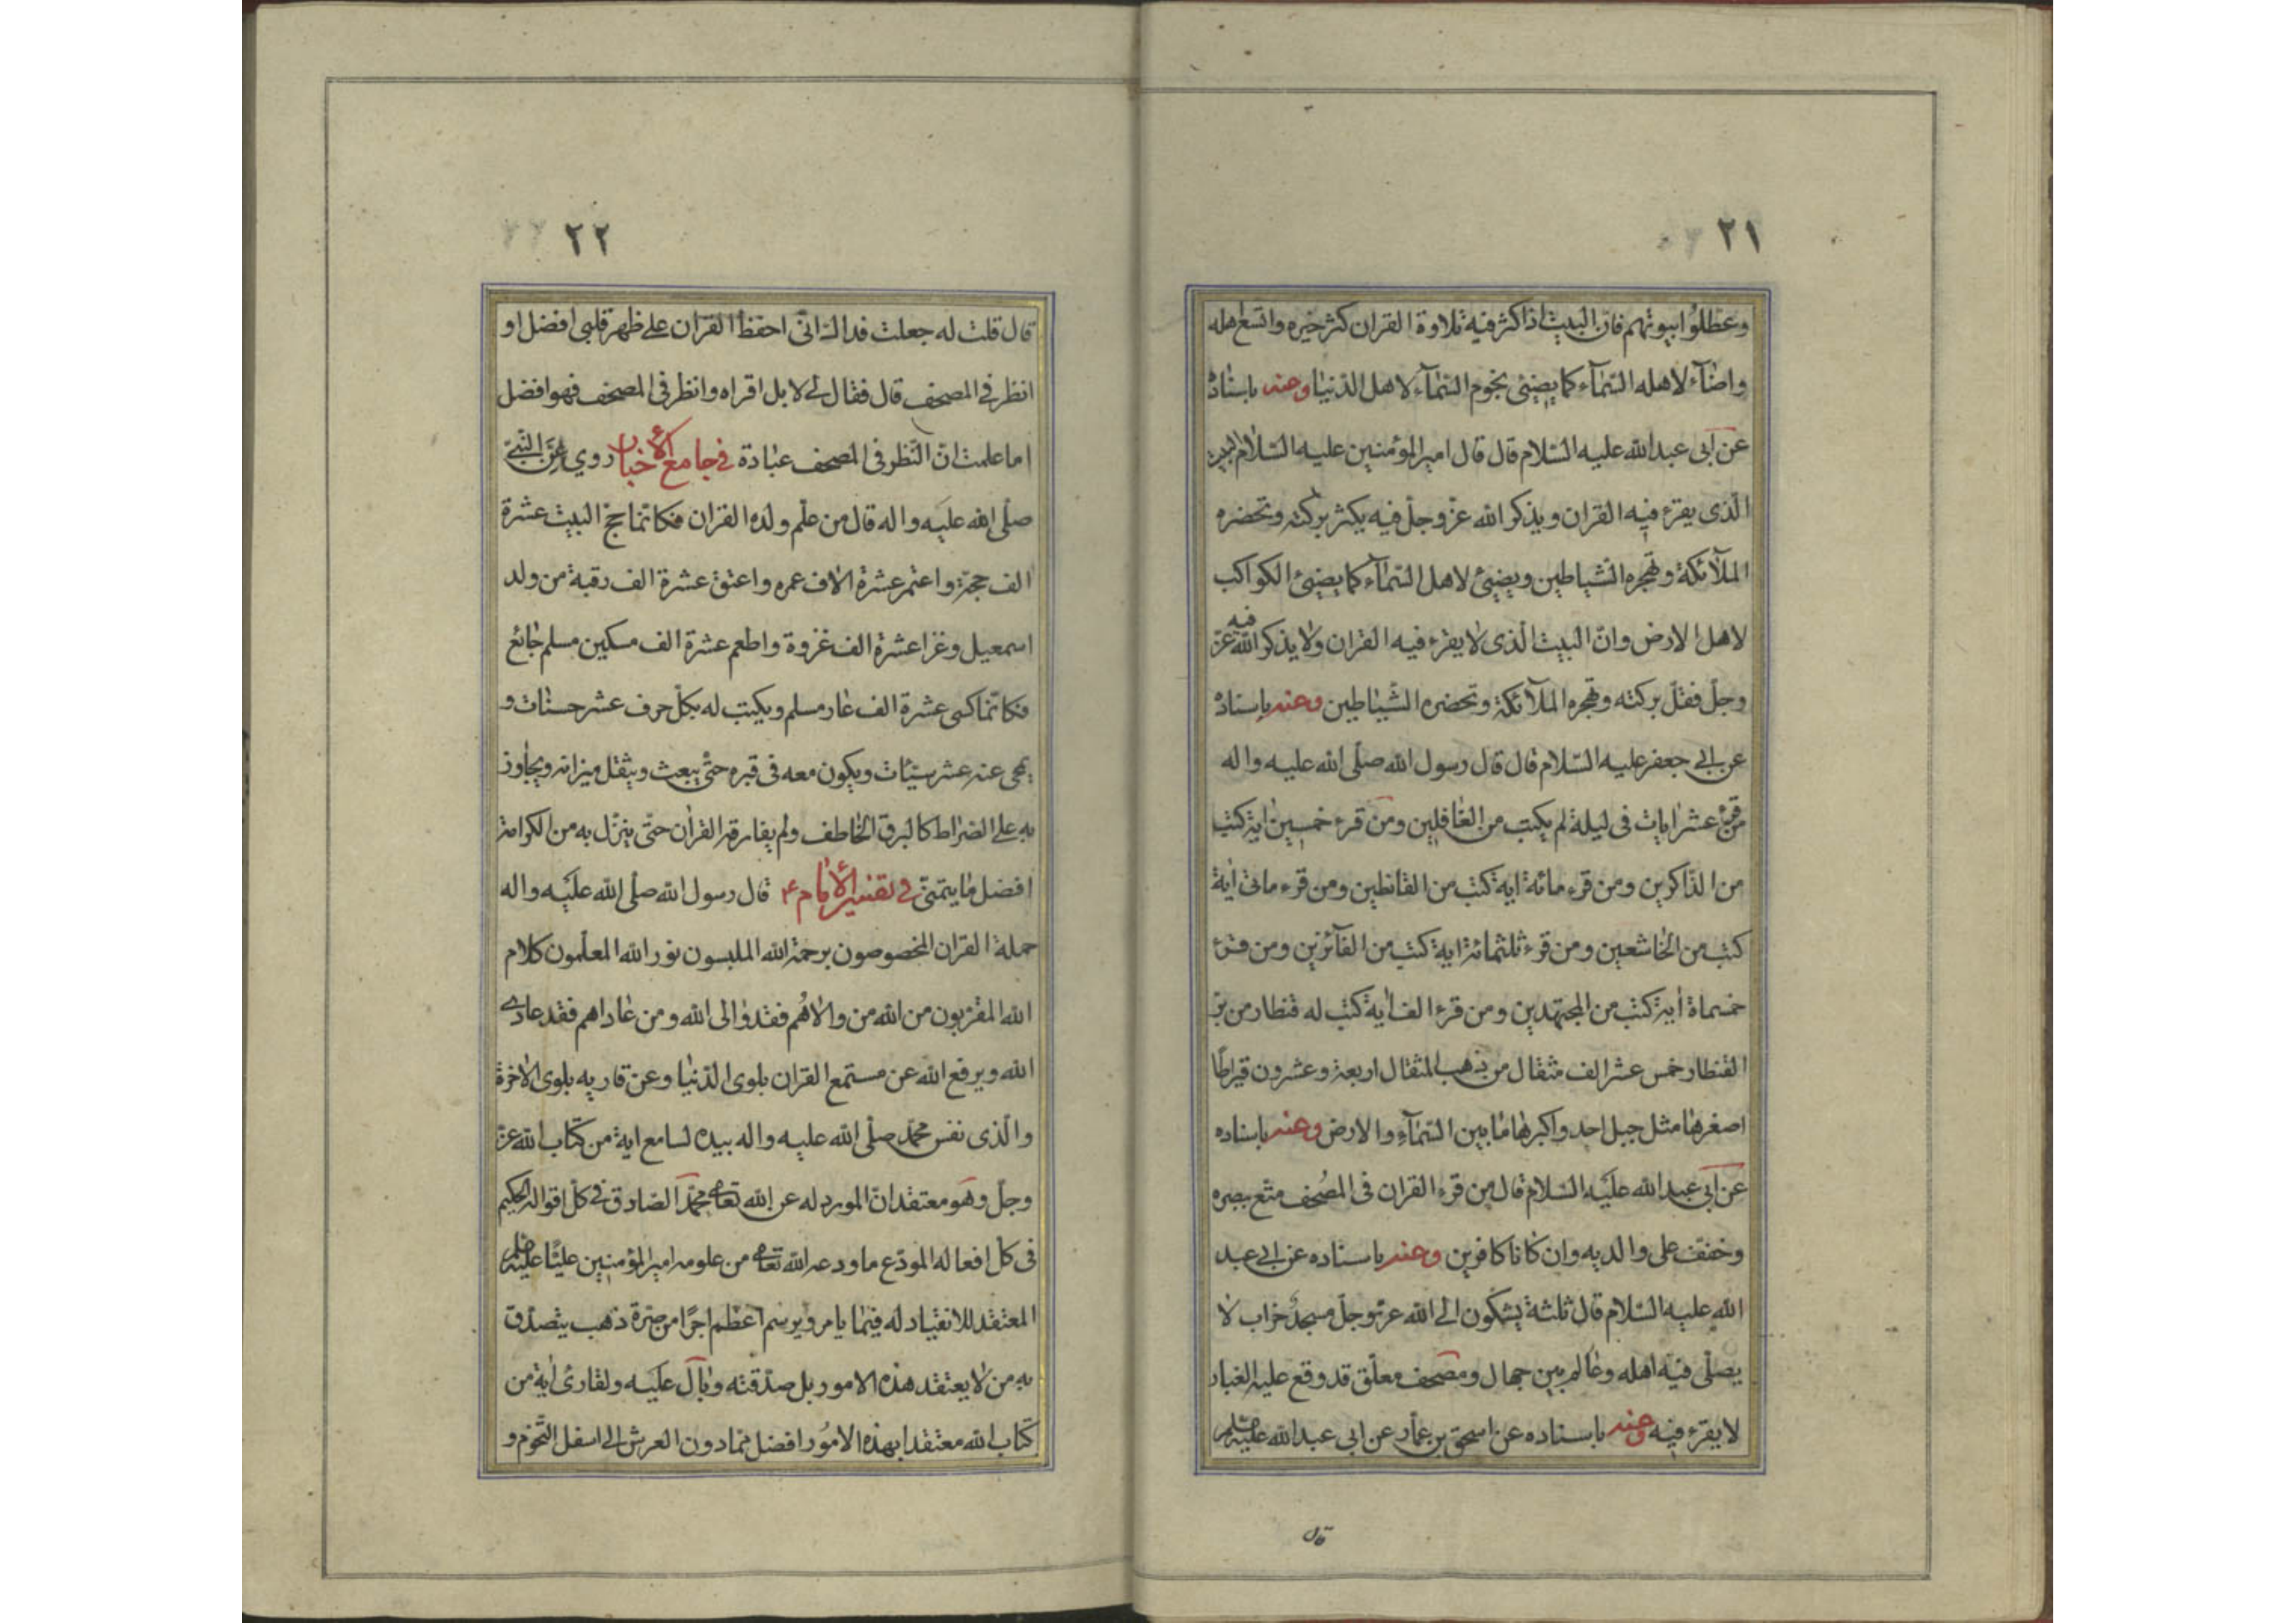 ٢١
وعطلوا بيوتهم فانّ البيت اذا كثر فيه تلاوة القران كثر خيره واتسع اهله
واضآء لاهله السّمآء كما يضيئ نجوم السّمآء لاهل الدّنيا وعنه باسناده
عن ابى عبدالله عليه السّلام قال قال اميرالمؤمنين عليه السّلام البيت
الّذى يقرء فيه القران ويذكر الله عزّ وجلّ فيه يكثر بركته وتحضره
الملآئكة وتهجره الشياطين ويضيئ لاهل السّمآء كما يضيئ الكواكب
لاهل الارض وانّ البيت الّذى لا يقرء فيه القران ولا يذكر الله فيه عزّ
وجلّ فقلّ بركته وتهجره الملآئكة وتحضره الشّياطين وعنه باسناده
عن ابى جعفر عليه السّلام قال قال رسول الله صلّى الله عليه واله
من قرء عشر ايات فى ليلة لم يكتب من الغافلين ومن قرء خمسين اية كتب
من الذّاكرين ومن قرء مائة اية كتب من القانطين ومن قرء مائتى اية
كتب من الخاشعين ومن قرء ثلثمائة اية كتب من الفآئزين ومن قرء
خمسماة اية كتب من المجتهدين ومن قرء الف اية كتب له قنطار من برّ
القنطار خمس عشر الف مثقال من ذهب المثقال اربعة وعشرون قيراطًا
اصغرها مثل جبل احد واكبرها ما بين السّمآء والارض وعنه باسناده
عن ابى عبدالله عليه السّلام قال من قرء القران فى المصُحف متّع ببصره
وخفّف على والديه وان كانا كافرين وعنه باسناده عن ابى عبد
الله عليه السّلام قال ثلثة يشكون الى الله عزّوجلّ مسجد خراب لا
يصلّى فيه اهله وعالم بين جهال ومصحف معلّق قد وقع عليه الغبار
لا يقرء فيه وعنه باسناده عن اسحق بن عمّار عن ابى عبدالله عليه السّلم
قال
٢٢
قال قلت له جعلت فداك انّى احفظ القران على ظهر قلبى افضل او
انظر فى المصحف قال فقال لى لا بل اقراه وانظر فى المصحف فهو افضل
اما علمت انّ النّظر فى المصحف عبادة فى جامع الاخبار روي عن النّبىّ
صلّى الله عليه واله قال من علّم ولده القران فكانّما حجّ البيت عشرة
الف حجّة واعتمر عشرة الاف عمره واعتق عشرة الف رقبة من ولد
اسمعيل وغزا عشرة الف غزوة واطعم عشرة الف مسكين مسلم جائع
فكانّما كسى عشرة الف عار مسلم ويكتب له بكلّ حرف عشر حسنات و
يمحى عنه عشر سيّئات ويكون معه فى قبره حتّى يبعث ويثقل ميزانه ويجاوز
به على الصّراط كالبرق الخاطف ولم يفارقه القران حتّى ينزّل به من الكرامة
افضل ما يتمنّى فى تفسير الامام ع قال رسول الله صلّى الله عليه واله
حملة القران المخصوصون برحمة الله الملبسون نور الله المعلّمون كلام
الله المقرّبون من الله من والاهُم فقد والى الله ومن عاداهم فقد عادى
الله ويرفع الله عن مستمع القران بلوى الدّنيا وعن قاريه بلوى الاخرة
والّذى نفس محمّد صلّى الله عليه واله بيده لسامع اية من كتاب الله عزّ
وجلّ وهو معتقد انّ المورد له عن الله تعالى محمّد الصّادق فى كلّ اقواله الحكيم
فى كلّ افعاله المودع ما ودعه الله تعالى من علومه اميرالمؤمنين عليًّا عليه السّلم
المعتقد للانقياد له فيما يامر ويرسم اعظم اجرًا من صبرة ذهب يتصدّق
به من لا يعتقد هذه الامور بل صدّقته وبال عليه ولقارئ اية من
كتاب الله معتقدا بهذه الامُور افضل ممّا دون العرش الى اسفل التّخوم و